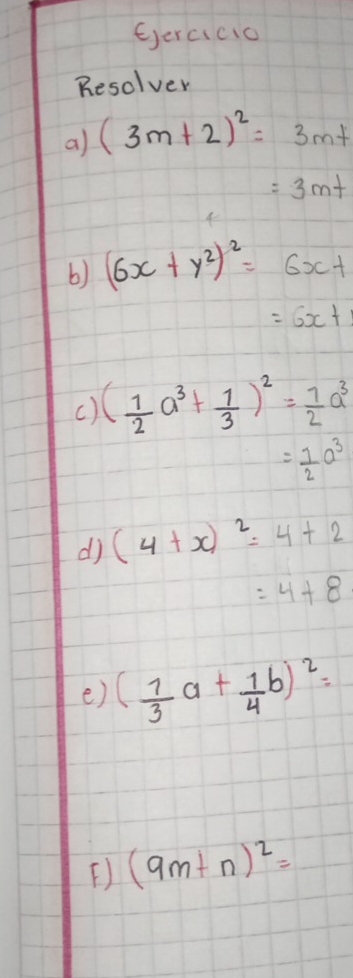 Ejercicio
Resolver
a) (3m + 2)² = 3m +
= 3m +
b) (6x + y²)² = 6x +
= 6x +
c) (1/2 a³ + 1/3)² = 1/2 a³
= 1/2 a³
d) (4 + x)² = 4 + 2
= 4 + 8
e) (1/3 a + 1/4 b)² =
F) (9m + n)² =